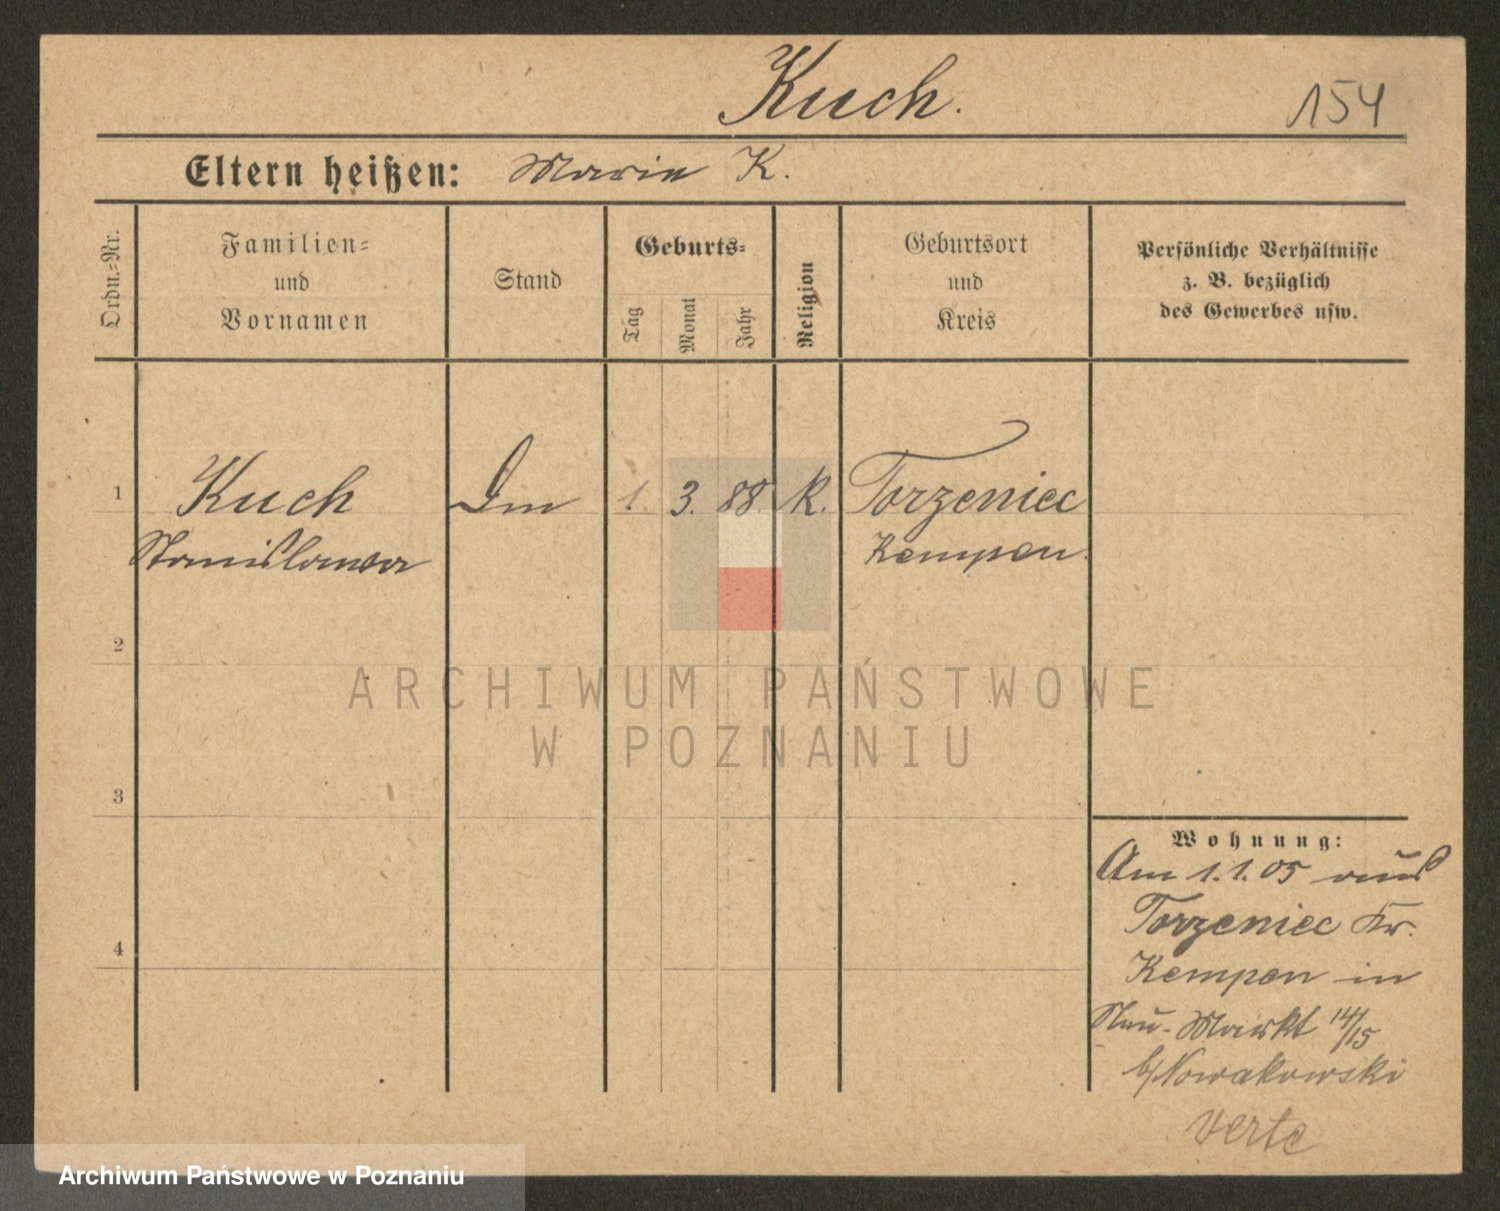 Kuch.
154
Eltern heißen: Marie K.
Ordn.-Nr.
Familien-
und
Vornamen
Stand
Geburts-
Tag
Monat
Jahr
Religion
Geburtsort
und
Kreis
Persönliche Verhältnisse
z. B. bezüglich
des Gewerbes usw.
1 Kuch Dm 1. 3. 88. K. Torzeniec
Stanislawa Kempen.
2
ARCHIWUM PAŃSTWOWE
W POZNANIU
3
Wohnung:
Am 1.1.05 aus
Torzeniec Kr.
4
Kempen in
Neu-Markt 14/15
b/Nowakowski
verte
Archiwum Państwowe w Poznaniu